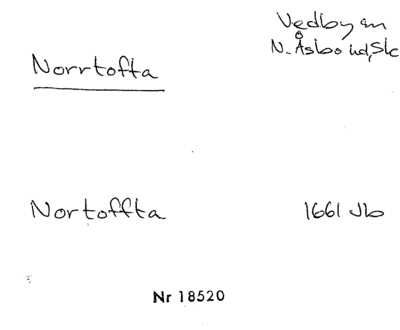 Vedby sn
N. Åsbo hd, Sk
Norrtofta
Nortoffta 1661 Jb
Nr 18520